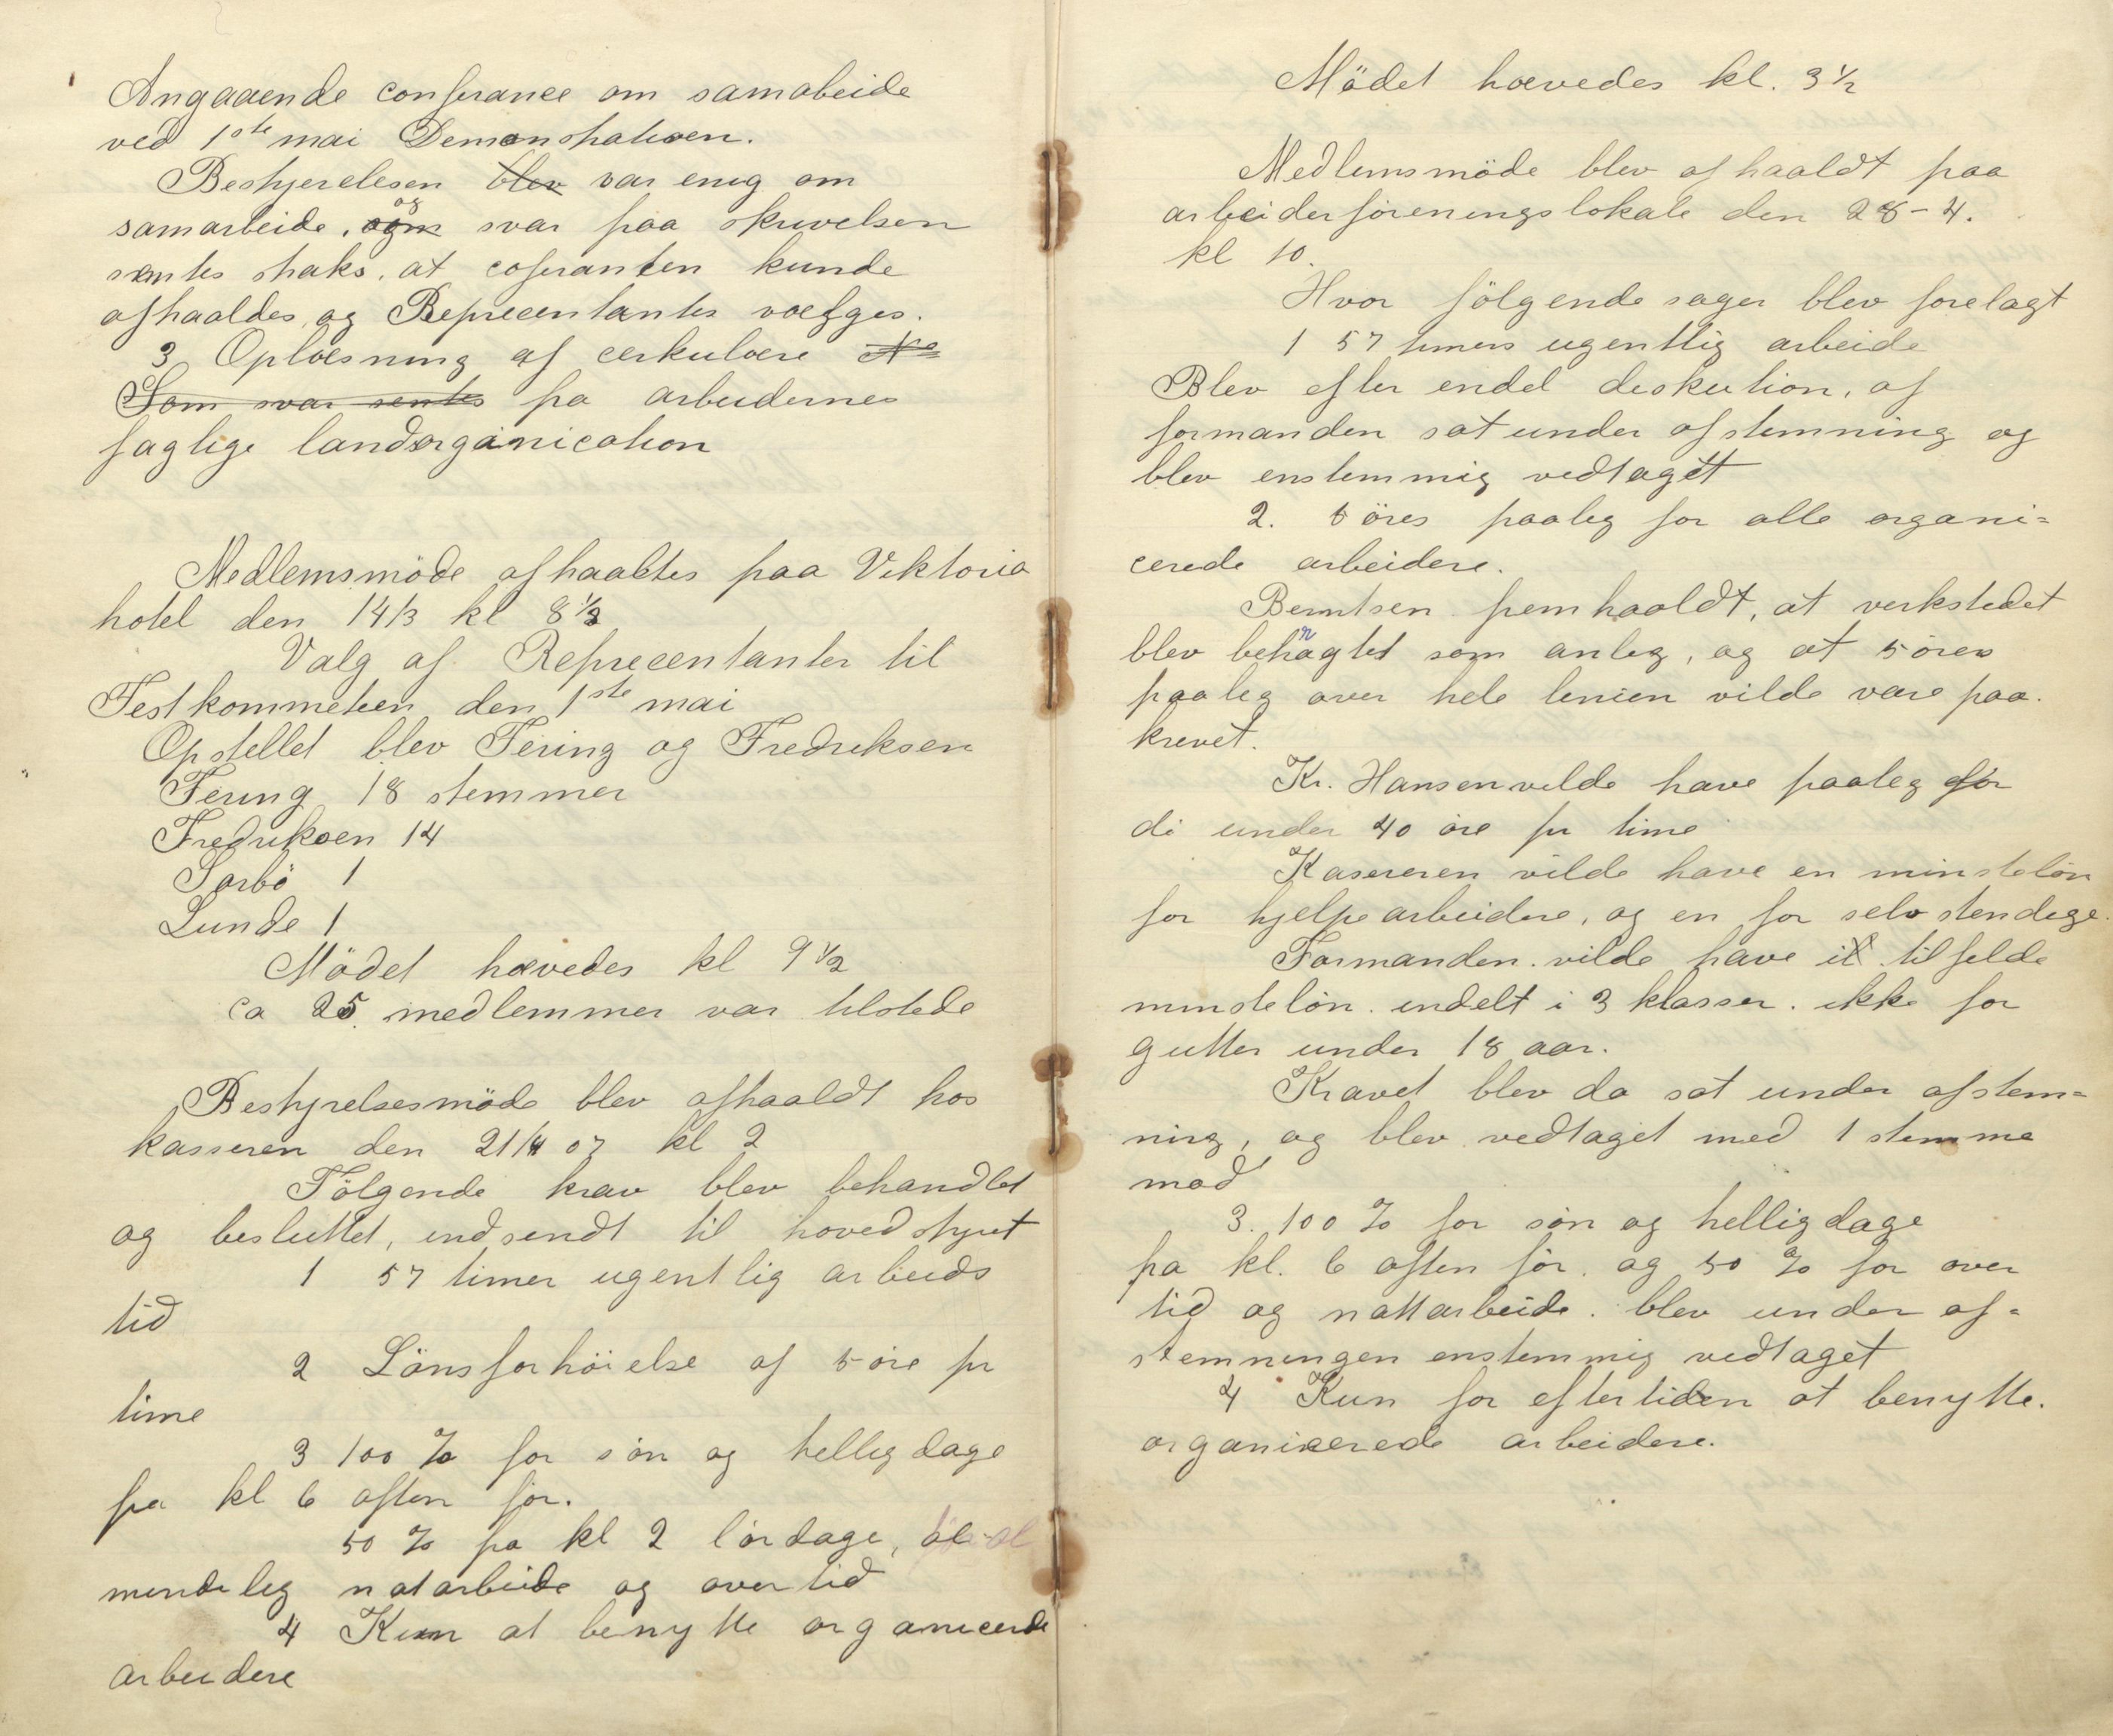 Angaaende conferance om samabeide
ved 1ste mai Demonstrationen.
Bestyerelesen blev var enig om
samarbeide, og svar paa skrivelsen
sentes straks, at coferanten kunde
afhaaldes, og Reprecentanter vælges.
3 Oplæsning af cerkulære No
Som svar sentes fra arbeidernes
faglige landsorganication
Medlemsmöde afhaaltes paa Viktoria
hotel den 14/3 kl 8 1/2
Valg af Reprecentanter til
Festkommeteen den 1ste mai
Opstellet blev Fering og Fredriksen
Fering 18 stemmer
Fredriksen 14
Sorbö 1
Lunde 1
Mödet hævedes kl 9 1/2
ca 25 medlemmer var tilstede
Bestyrelsesmöde blev afhaaldt hos
kasseren den 21/4 07 kl 2
Følgende krav blev behandlet
og besluttet, indsendt til hovedstyret
1 57 timer ugentlig arbeids
tid
2 Lönsforhöielse af 5 öre pr
time
3 100 % for søn og hellig dage
fra kl 6 aften før.
50 % fra kl 2 lördage, al
mindelig natarbeide og overtid
4 Kun at benytte organicerde
arbeidere
Mödet hævedes kl. 3 1/2
Medlemsmöde blev afhaaldt paa
arbeiderföreningslokale den 28-4.
kl 10.
Hvor fölgende sager blev forelagt
1 57 timers ugentlig arbeide
Blev efter endel deskution, af
formanden sat under afstemning og
blev enstemmig vedtaget
2. 5 öres paaleg for alle organi=
cerede arbeidere.
Berntsen fremhaaldt, at verkstedet
blev behagtet som anleg, og at 5 öres
paaleg over hele lenien vilde være paa.
krevet.
Kr. Hansen vilde have paaleg for
di under 40 öre pr time
Kasereren vilde have en minstelön
for hjelpearbeidere, og en for selvstendige.
Formanden vilde have i tilfelde
minstelön indelt i 3 klasser. ikke for
gutter under 18 aar.
Kravet blev da sat under afstem=
ning, og blev vedtaget med 1 stemme
mod
3. 100 % for søn og helligdage
fra kl. 6 aften før. og 50 % for over
tid og nattarbeide. blev under af=
stemningen enstemmig vedtaget
4 Kun for eftertiden at benytte.
organiserede arbeidere.